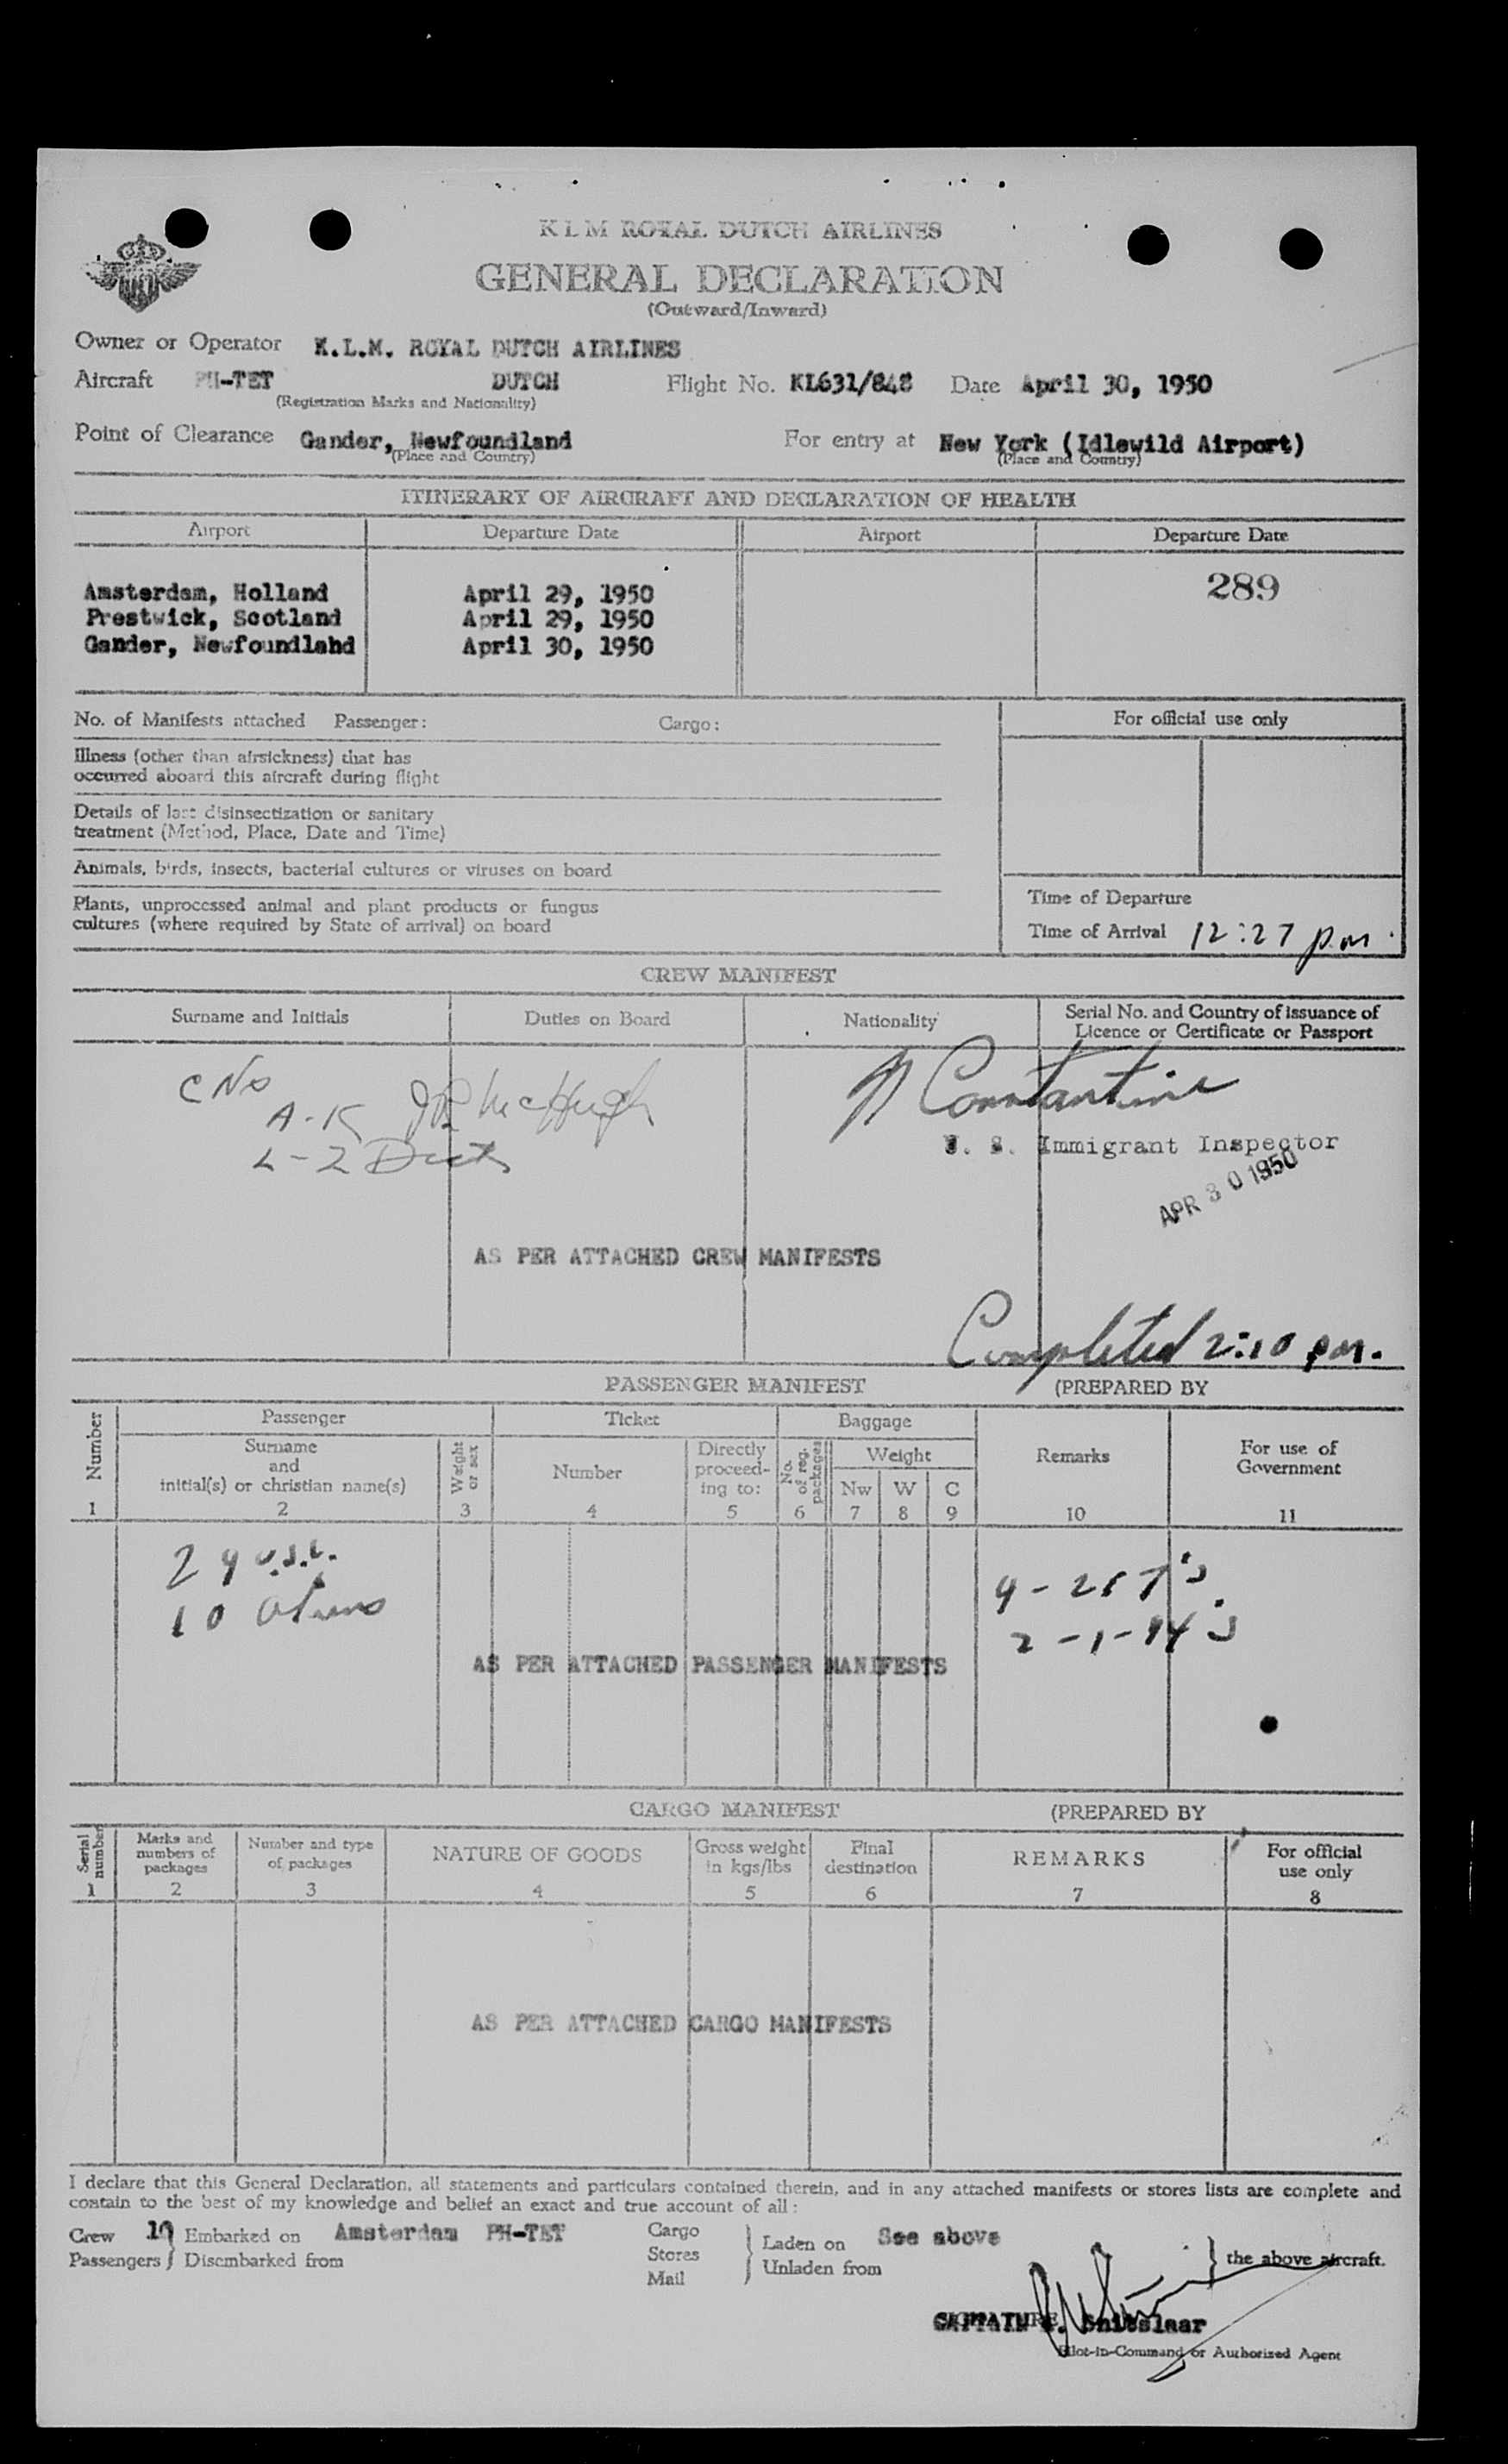 KLM ROYAL DUTCH AIRLINES
GENERAL DECLARATION
(Outward/Inward)
Owner or Operator K.L.M. ROYAL DUTCH AIRLINES
Aircraft PH-TET DUTCH Flight No. KL631/848 Date April 30, 1950
(Registration Marks and Nationality)
Point of Clearance Gander, Newfoundland For entry at New York (Idlewild Airport)
(Place and Country) (Place and Country)
ITINERARY OF AIRCRAFT AND DECLARATION OF HEALTH
Airport Departure Date Airport Departure Date
289
Amsterdam, Holland April 29, 1950
Prestwick, Scotland April 29, 1950
Gander, Newfoundlahd April 30, 1950
No. of Manifests attached Passenger: Cargo: For official use only
Illness (other than airsickness) that has
occurred aboard this aircraft during flight
Details of last disinsectization or sanitary
treatment (Method, Place, Date and Time)
Animals, birds, insects, bacterial cultures or viruses on board
Plants, unprocessed animal and plant products or fungus
cultures (where required by State of arrival) on board
Time of Departure
Time of Arrival 12:27 p.m.
CREW MANIFEST
Surname and Initials Duties on Board Nationality Serial No. and Country of Issuance of
Licence or Certificate or Passport
C No
A-K McHugh
L-Z
Constantine
U. S. Immigrant Inspector
APR 30 1950
AS PER ATTACHED CREW MANIFESTS
Completed 2:10 p.m.
PASSENGER MANIFEST (PREPARED BY
Number Passenger Ticket Baggage Remarks For use of
Government
Surname
and
initial(s) or christian name(s)
Weight
or sex
Number
Directly
proceed-
ing to:
No.
of reg.
packages
Weight
Nw W C
1 2 3 4 5 6 7 8 9 10 11
29 U.S.C.
10 Aliens
4 - 257's
AS PER ATTACHED PASSENGER MANIFESTS
CARGO MANIFEST (PREPARED BY
Serial
number
Marks and
numbers of
packages
Number and type
of packages
NATURE OF GOODS
Gross weight
in kgs/lbs
Final
destination
REMARKS
For official
use only
1 2 3 4 5 6 7 8
AS PER ATTACHED CARGO MANIFESTS
I declare that this General Declaration, all statements and particulars contained therein, and in any attached manifests or stores lists are complete and
contain to the best of my knowledge and belief an exact and true account of all:
Crew 10 Embarked on Amsterdam PH-TET Cargo Laden on See above
Passengers Disembarked from Stores Unladen from the above aircraft.
Mail
CAPTAIN Snitslaar
Pilot-in-Command or Authorized Agent